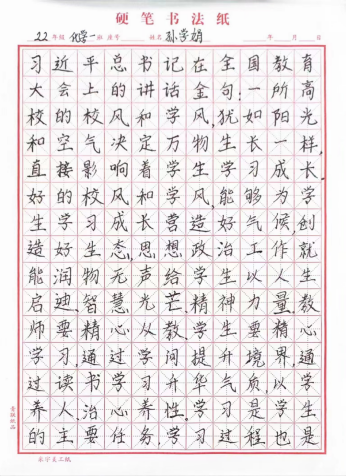 硬笔书法纸
22年级 化学一班 座号 姓名 孙学娟 年 月 日
习近平总书记在全国教育
大会上的讲话金句:一所高
校的校风和学风,犹如阳光
和空气决定万物生长一样,
直接影响着学生学习成长。
好的校风和学风,能够为学
生学习成长营造好气候,创
造好生态,思想政治工作就
能润物无声给学生以人生
启迪、智慧光芒、精神力量。教
师要精心从教、学生要精心
学习,通过学问提升境界,通
过读书学习升华气质以学
养人、治心养性。学习是学生
的主要任务,学习过程也是